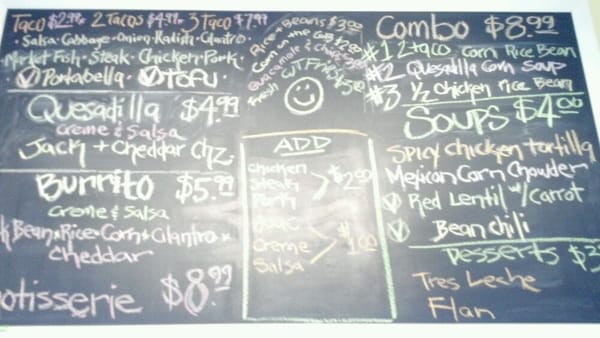 Taco $2.99 2 Tacos $4.99 3 Taco $7.99
• Salsa • Cabbage • Onion • Radish • Cilantro •
Market Fish • Steak • Chicken • Pork •
V Portabella • V TOFU •
Quesadilla $4.99
Creme & Salsa
Jack + Cheddar Chz.
Burrito $5.99
Creme & Salsa
k Bean • Rice • Corn • Cilantro •
Cheddar
otisserie $8.99
Rice + Beans $3.99
Corn on the Cob $2.00
Guacamole & Chips
Fresh
ADD
Chicken
Steak
Pork
$2.00
Guac
Creme
Salsa
$1.00
Combo $8.99
#1 2 taco Corn Rice Bean
#2 Quesadilla Corn Soup
#3 1/2 Chicken rice Bean
Soups $4.00
Spicy chicken tortilla
Mexican Corn Chowder
V Red Lentil w/ Carrot
V Bean chili
Desserts $3
Tres Leche
Flan